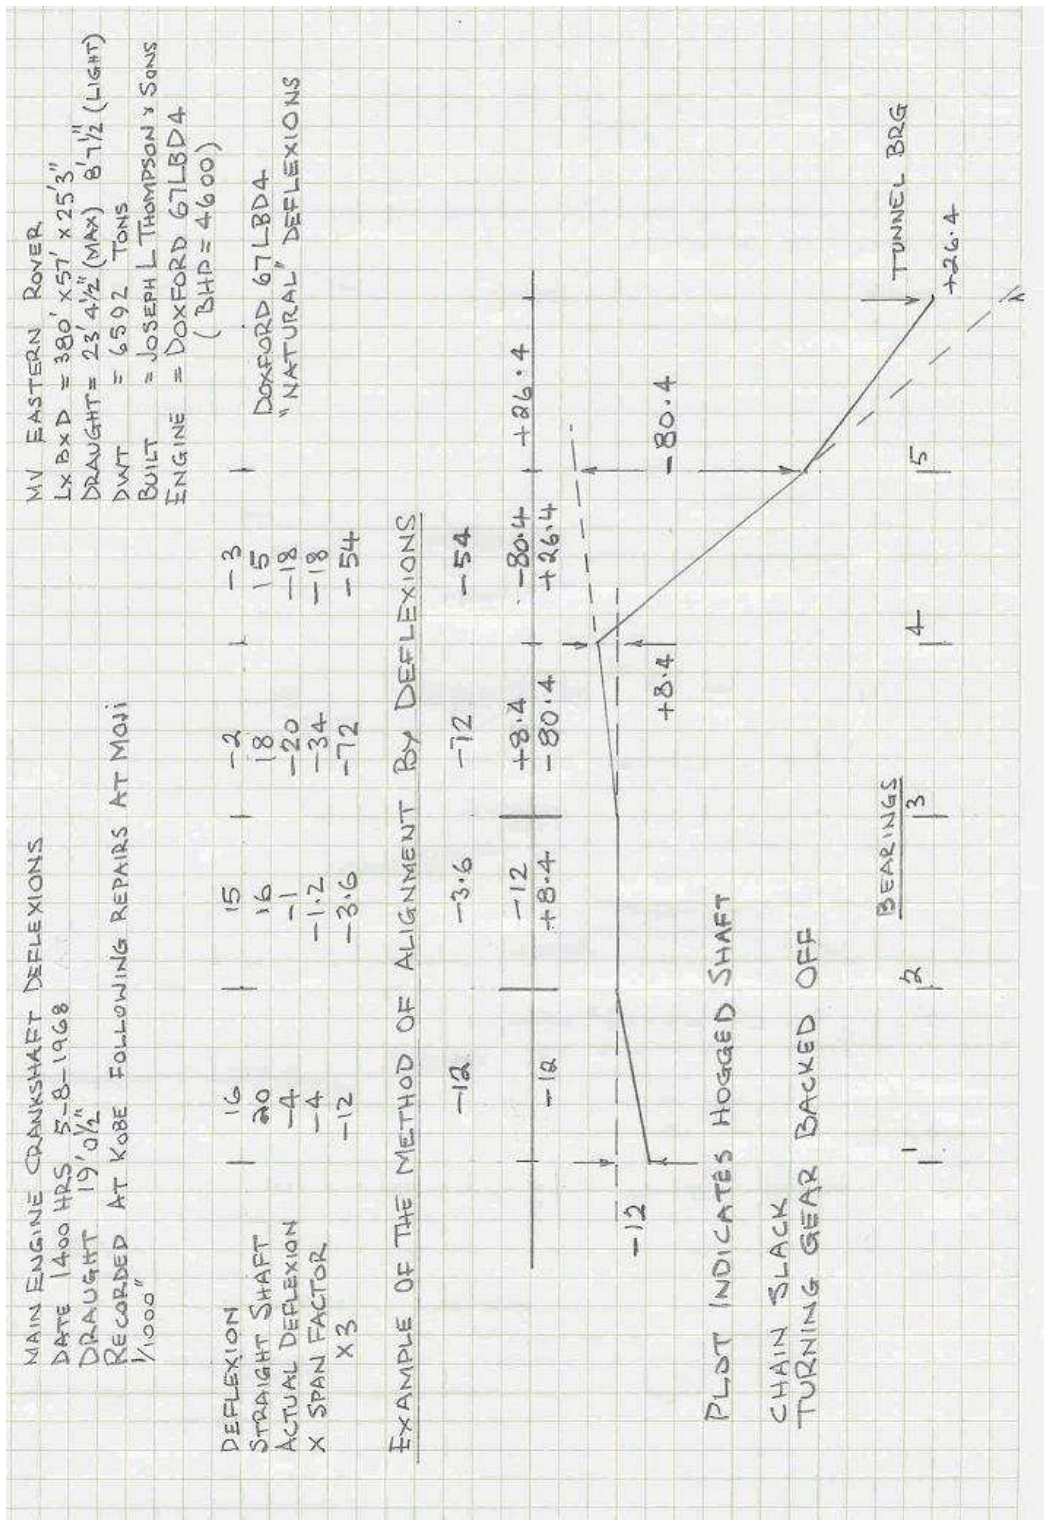 MAIN ENGINE CRANKSHAFT DEFLEXIONS
DATE 1400 HRS 5-8-1968
DRAUGHT 19' 0½"
RECORDED AT KOBE FOLLOWING REPAIRS AT MOJI
1/1000"
MV EASTERN ROVER
LXBXD = 380' X 57' X 25'3"
DRAUGHT = 23'4½" (MAX) 8'7½" (LIGHT)
DWT = 6592 TONS
BUILT = JOSEPH L THOMPSON & SONS
ENGINE = DOXFORD 67LBD4
(BHP = 4600)
DEFLEXION 16 15 -2 -3
STRAIGHT SHAFT 20 16 18 15
ACTUAL DEFLEXION -4 -1 -20 -18
X SPAN FACTOR -4 -1.2 -34 -18
X3 -12 -3.6 -72 -54
DOXFORD 67LBD4
"NATURAL" DEFLEXIONS
EXAMPLE OF THE METHOD OF ALIGNMENT BY DEFLEXIONS
-12 -3.6 -72 -54
-12 +8.4 -80.4 +26.4
-12 +8.4 -80.4 +26.4
-12
+8.4
-80.4
TUNNEL BRG
+26.4
PLOT INDICATES HOGGED SHAFT
CHAIN SLACK
TURNING GEAR BACKED OFF
BEARINGS
1 2 3 4 5